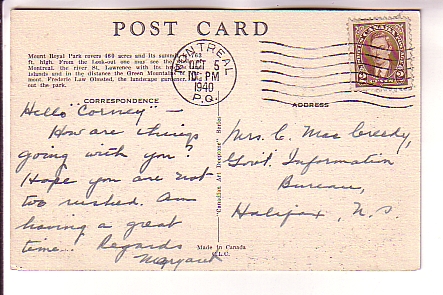 POST CARD
Mount Royal Park covers 460 acres and its summit, 763
ft. high. From the Look-out one may see the
Montreal, the river St. Lawrence with its
islands and in the distance the Green Mountains
mont. Frederic Law Olmsted, the landscape gardener,
out the park.
MONTREAL
OCT 5
10 PM
1940
P.Q.
CORRESPONDENCE
ADDRESS
Hello "Corney" -
How are things
going with you?
Hope you are not
too rushed. Am
having a great
time. Regards
Margaret
"Canadian Art Deeptone" Series
Made in Canada
Mrs. C. MacCreedy,
Govt. Information
Bureau,
Halifax, N.S.